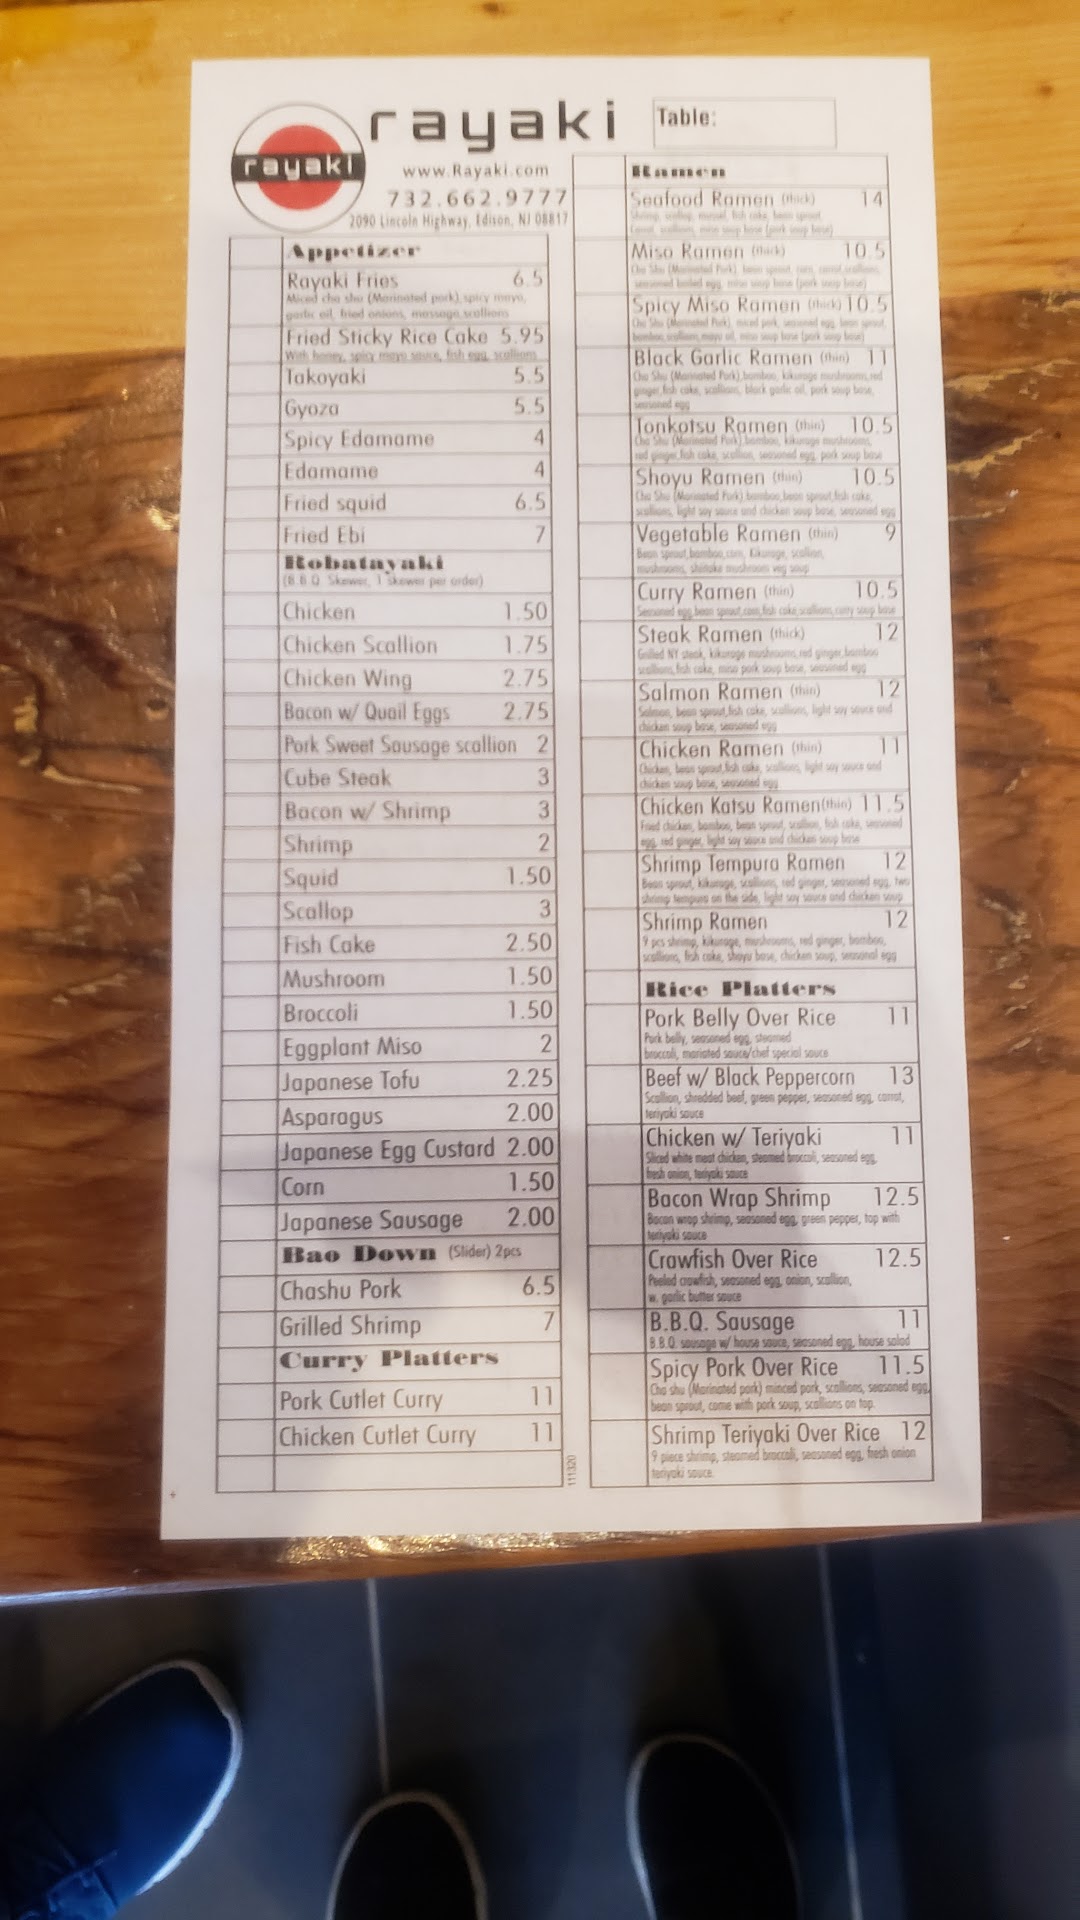 rayaki
rayaki
Table:
www.Rayaki.com
732.662.9777
2090 Lincoln Highway, Edison, NJ 08817
Appetizer
Rayaki Fries 6.5
Miced cha shu (Marinated pork), spicy mayo,
garlic oil, fried onions, massago, scallions
Fried Sticky Rice Cake 5.95
With honey, spicy mayo sauce, fish egg, scallions
Takoyaki 5.5
Gyoza 5.5
Spicy Edamame 4
Edamame 4
Fried squid 6.5
Fried Ebi 7
Robatayaki
(B.B.Q. Skewer, 1 skewer per order)
Chicken 1.50
Chicken Scallion 1.75
Chicken Wing 2.75
Bacon w/ Quail Eggs 2.75
Pork Sweet Sausage scallion 2
Cube Steak 3
Bacon w/ Shrimp 3
Shrimp 2
Squid 1.50
Scallop 3
Fish Cake 2.50
Mushroom 1.50
Broccoli 1.50
Eggplant Miso 2
Japanese Tofu 2.25
Asparagus 2.00
Japanese Egg Custard 2.00
Corn 1.50
Japanese Sausage 2.00
Bao Down (Slider) 2pcs
Chashu Pork 6.5
Grilled Shrimp 7
Curry Platters
Pork Cutlet Curry 11
Chicken Cutlet Curry 11
111320
Ramen
Seafood Ramen (thick) 14
Shrimp, scallop, mussel, fish cake, bean sprout,
carrot, scallions, miso soup base (pork soup base)
Miso Ramen (thick) 10.5
Cha Shu (Marinated Pork), bean sprout, corn, carrot, scallions,
seasoned boiled egg, miso soup base (pork soup base)
Spicy Miso Ramen (thick) 10.5
Cha Shu (Marinated Pork), miced pork, seasoned egg, bean sprout,
bamboo, scallions, mayu oil, miso soup base (pork soup base)
Black Garlic Ramen (thin) 11
Cha Shu (Marinated Pork), bamboo, kikurage mushrooms, red
ginger, fish cake, scallions, black garlic oil, pork soup base,
seasoned egg
Tonkotsu Ramen (thin) 10.5
Cha Shu (Marinated Pork), bamboo, kikurage mushrooms,
red ginger, fish cake, scallion, seasoned egg, pork soup base
Shoyu Ramen (thin) 10.5
Cha Shu (Marinated Pork), bamboo, bean sprout, fish cake,
scallions, light soy sauce and chicken soup base, seasoned egg
Vegetable Ramen (thin) 9
Bean sprout, bamboo, corn, Kikurage, scallion,
mushrooms, shiitake mushroom veg soup
Curry Ramen (thin) 10.5
Seasoned egg, bean sprout, corn, fish cake, scallions, curry soup base
Steak Ramen (thick) 12
Grilled NY steak, kikurage mushrooms, red ginger, bamboo
scallions, fish cake, miso pork soup base, seasoned egg
Salmon Ramen (thin) 12
Salmon, bean sprout, fish cake, scallions, light soy sauce and
chicken soup base, seasoned egg
Chicken Ramen (thin) 11
Chicken, bean sprout, fish cake, scallions, light soy sauce and
chicken soup base, seasoned egg
Chicken Katsu Ramen(thin) 11.5
Fried chicken, bamboo, bean sprout, scallion, fish cake, seasoned
egg, red ginger, light soy sauce and chicken soup base
Shrimp Tempura Ramen 12
Bean sprout, kikurage, scallions, red ginger, seasoned egg, two
shrimp tempura on the side, light soy sauce and chicken soup
Shrimp Ramen 12
9 pcs shrimp, kikurage, mushrooms, red ginger, bamboo,
scallions, fish cake, shoyu base, chicken soup, seasonal egg
Rice Platters
Pork Belly Over Rice 11
Pork belly, seasoned egg, steamed
broccoli, mariated sauce/chef special sauce
Beef w/ Black Peppercorn 13
Scallion, shredded beef, green pepper, seasoned egg, carrot,
teriyaki sauce
Chicken w/ Teriyaki 11
Sliced white meat chicken, steamed broccoli, seasoned egg,
fresh onion, teriyaki sauce
Bacon Wrap Shrimp 12.5
Bacon wrap shrimp, seasoned egg, green pepper, top with
teriyaki sauce
Crawfish Over Rice 12.5
Peeled crawfish, seasoned egg, onion, scallion,
w. garlic butter sauce
B.B.Q. Sausage 11
B.B.Q. sausage w/ house sauce, seasoned egg, house salad
Spicy Pork Over Rice 11.5
Cha shu (Marinated pork) minced pork, scallions, seasoned egg,
bean sprout, come with pork soup, scallions on top.
Shrimp Teriyaki Over Rice 12
9 piece shrimp, steamed broccoli, seasoned egg, fresh onion
teriyaki sauce.